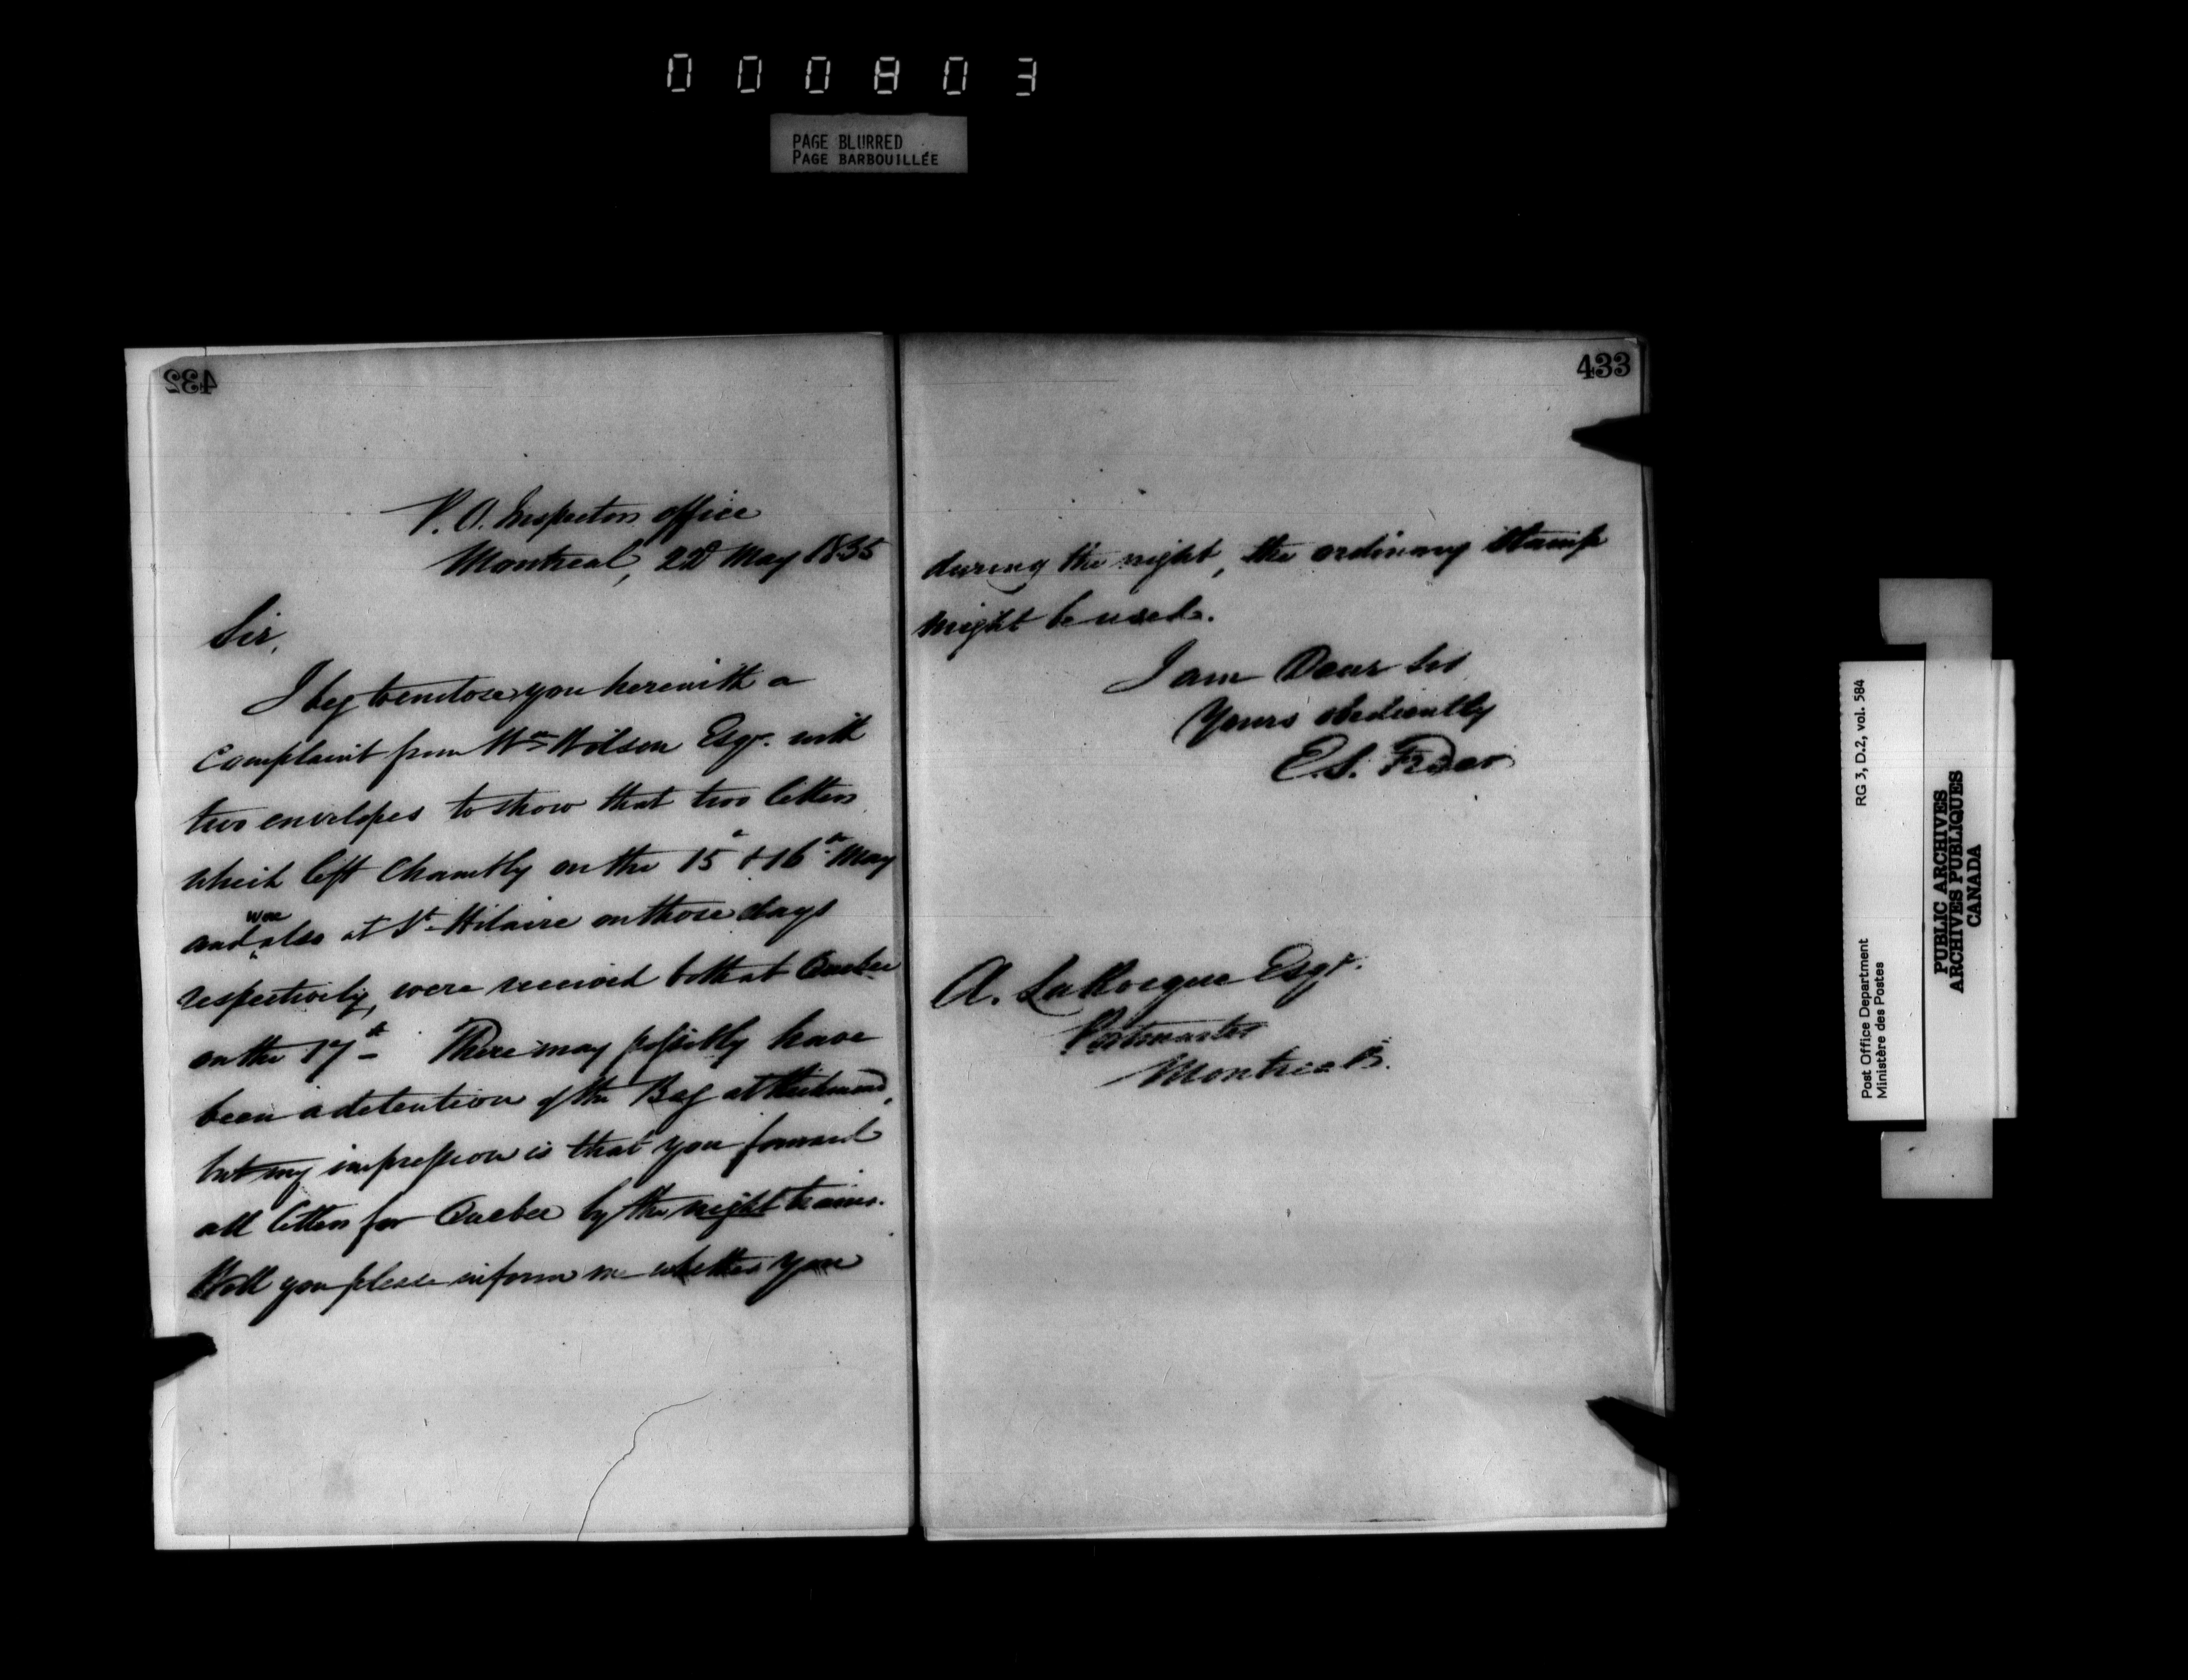 000803
PAGE BLURRED
PAGE BARBOUILLÉE
432
P. O. Inspectors office
Montreal, 22d May 1855
Sir,
I beg to enclose you herewith a
Complaint from Wm Wilson Esqr. with
two envelopes to show that two letters
which left Chambly on the 15th & 16th May
and were also at St Hilaire on those days
respectively, were received both at Quebec
on the 17th There may possibly have
been a detention of the Bag at Richmond,
but my impression is that you forward
all letters for Quebec by the night trains.
Will you please inform me whether you
433
during the night, the ordinary stamp
might be used.
I am Dear Sir
Yours obediently
E. S. Freer
A. LaRocque Esqr.
Postmaster
Montreal.
Post Office Department RG 3, D.2, vol. 584
Ministère des Postes
PUBLIC ARCHIVES
ARCHIVES PUBLIQUES
CANADA